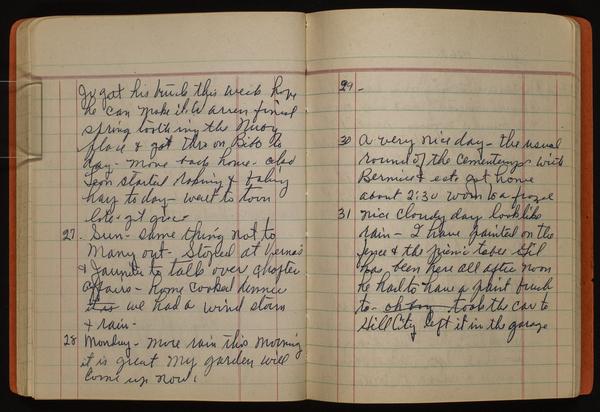 Jy got his truck this week hope
he can make it to
spring tooth ing the
place & got thru on Bibo to
day - move back home - also
Leon started raking & baling
hay to day - went to town
late - git groc
27. Sun - same thing not to
many out - Stoped at Verna's
& to talk over chapter
affairs - home cooked dinner
it is we had a wind storm
& rain -
28 Monday - more rain this morning
it is great my garden will
come up now.
29 -
30 A very nice day - the usual
round of the cementerys with
Bernice & eats got home
about 2:30 worn to a frazel
31 nice cloudy day looks like
rain - I have painted on the
fence & the picnic tabel Gil
has been here all after noon
he had to have a paint brush
to - oh boy - took the car to
Hill City left it in the garage